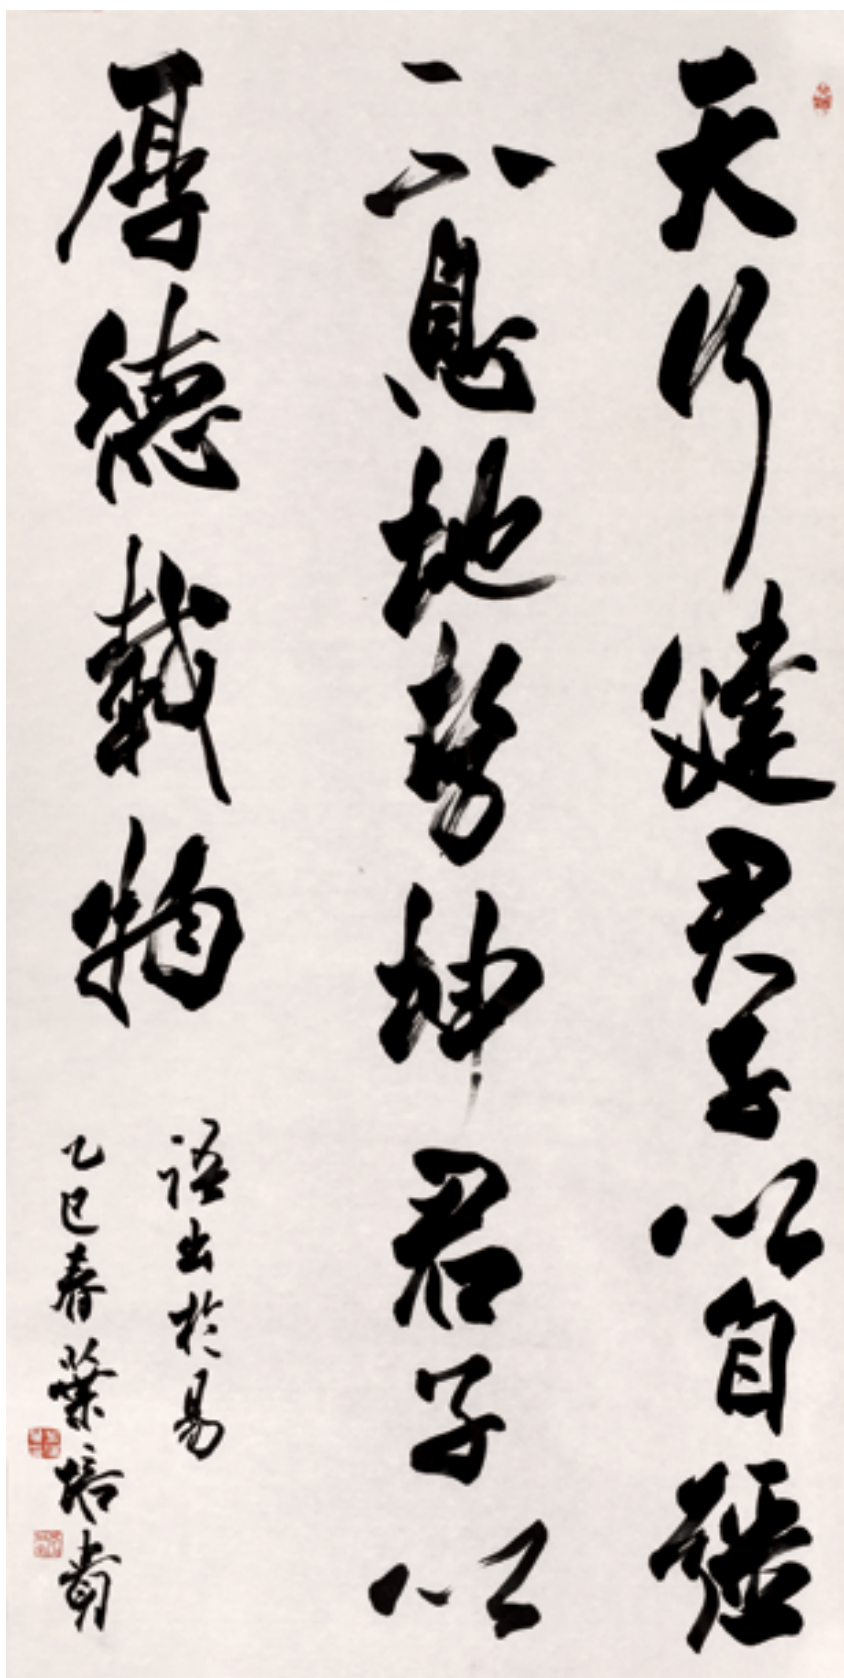 天行健君子以自彊
不息地勢坤君子以
厚德載物
語出於易
乙巳春葉培貴